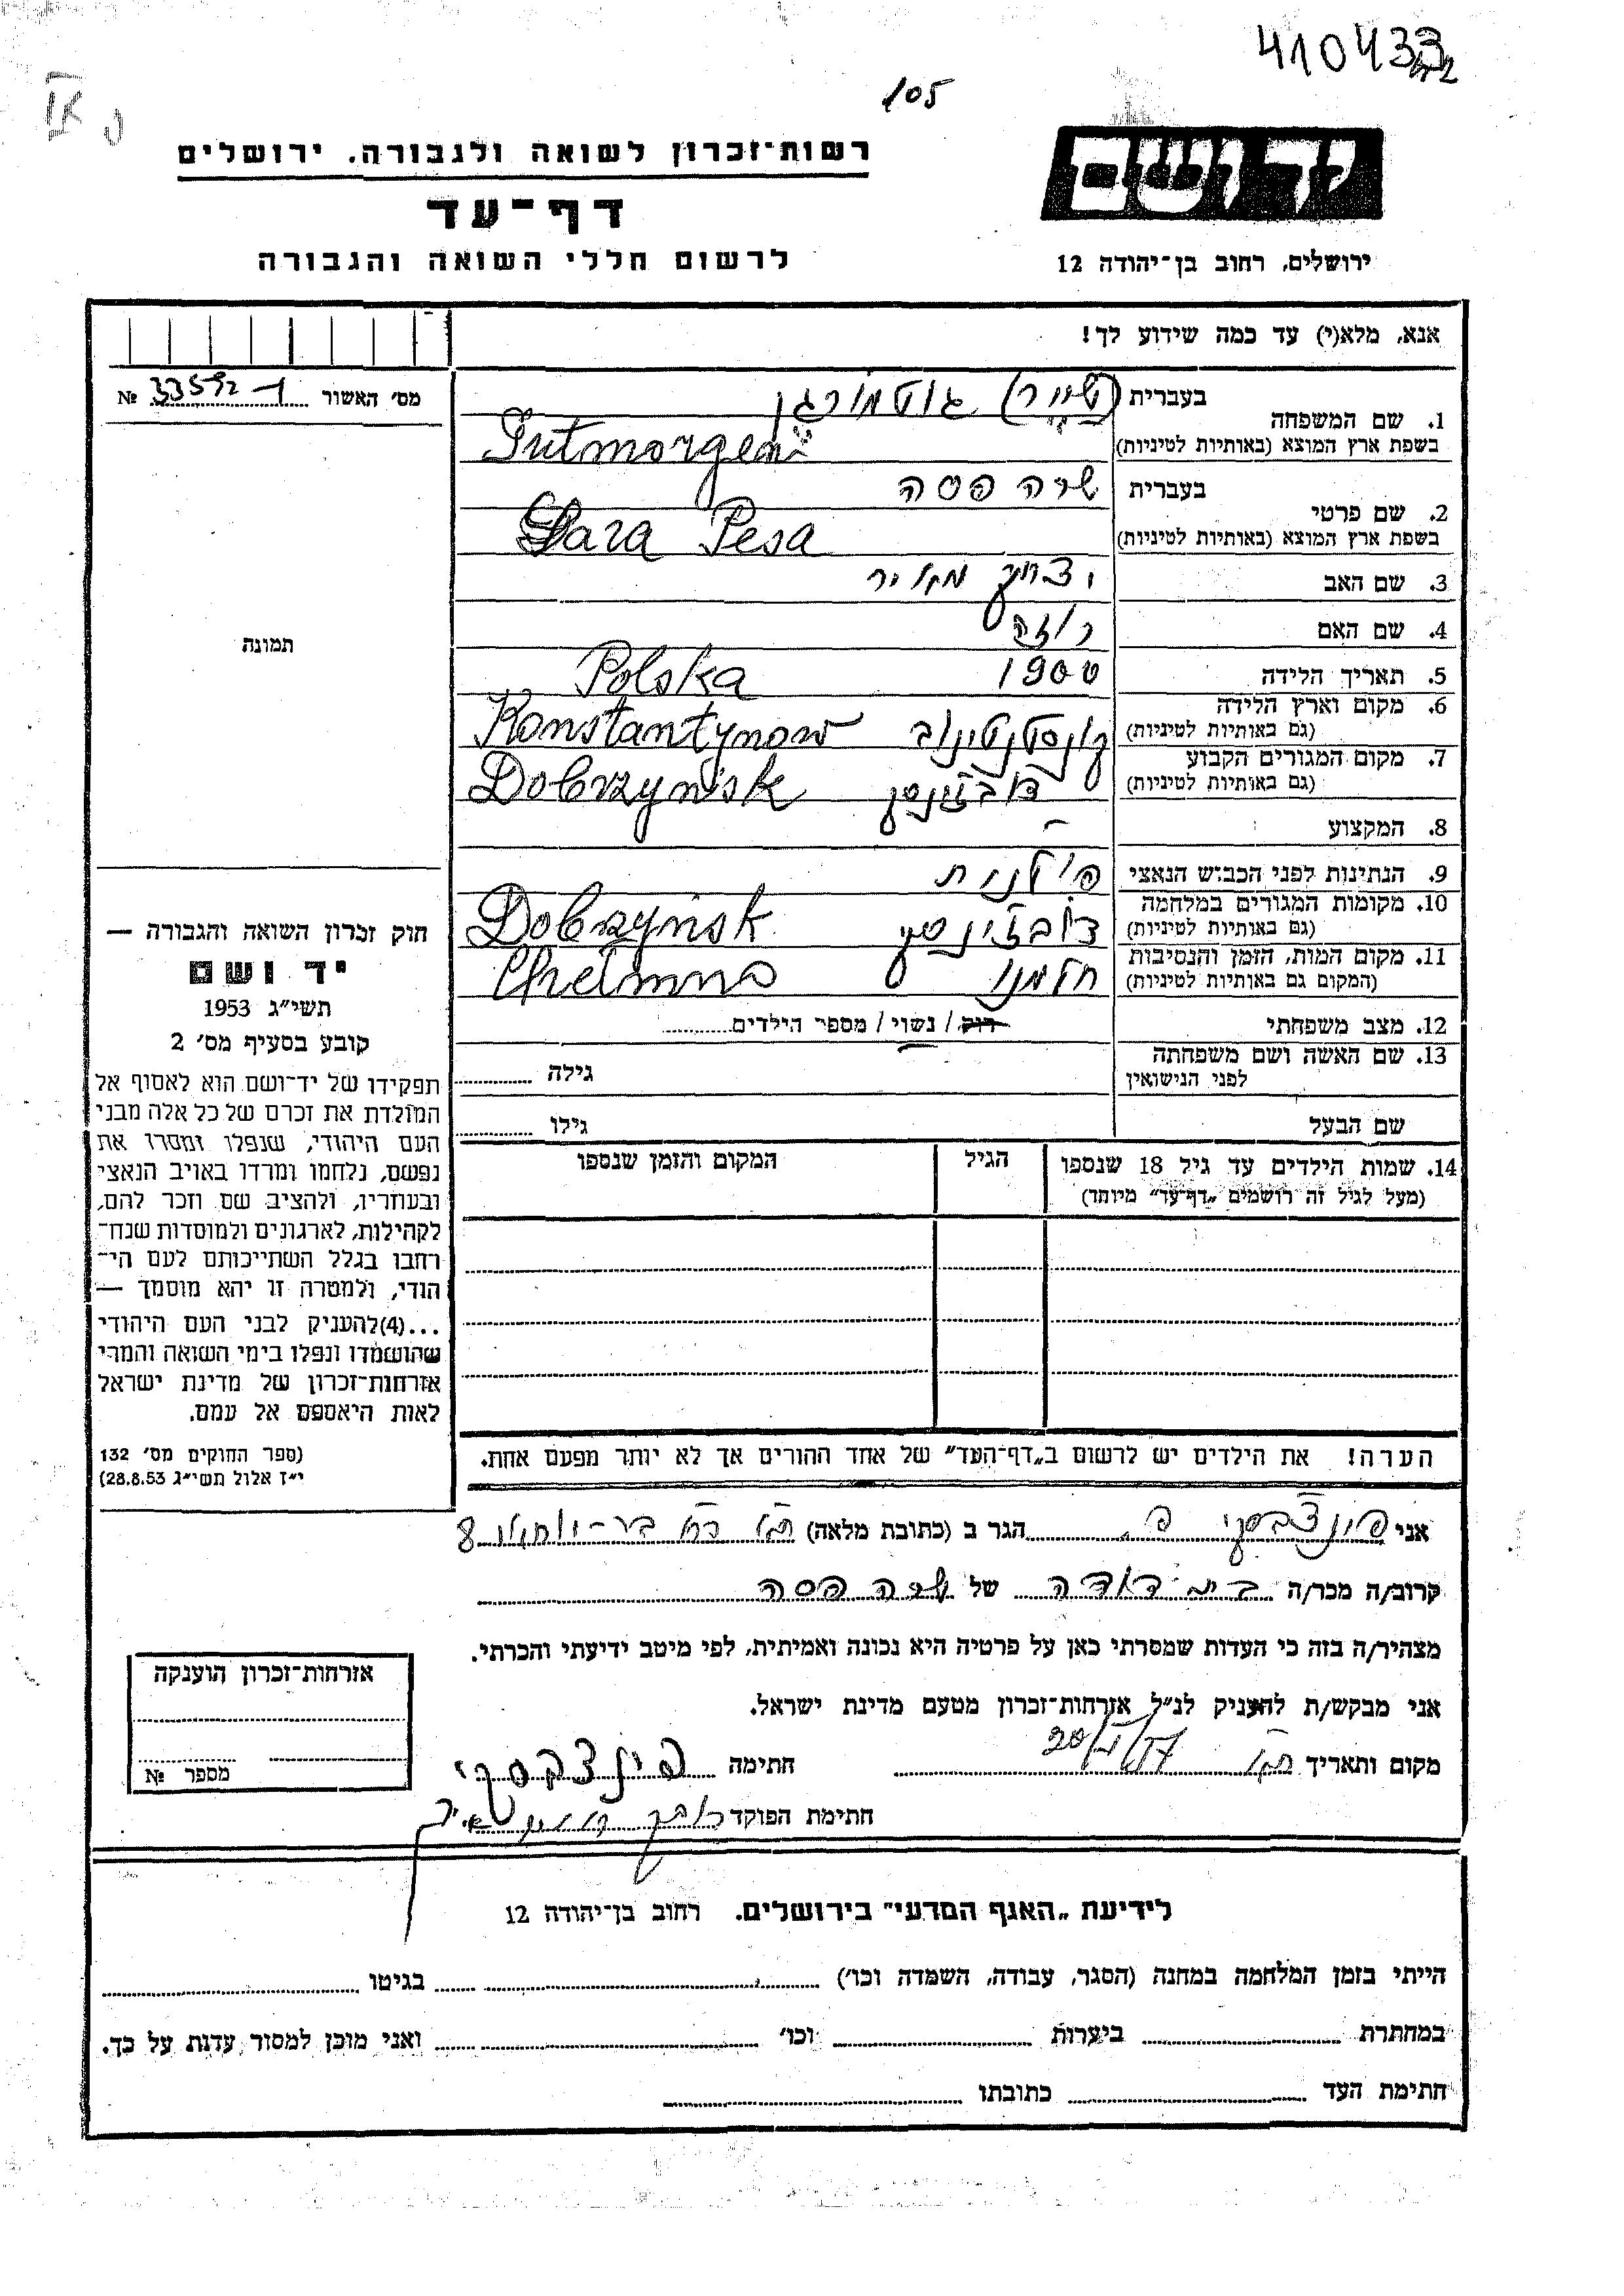 410433
105
IX
רשות־זכרון לשואה ולגבורה. ירושלים
יד ושם
דף־עד
לרשום חללי השואה והגבורה
ירושלים, רחוב בן־יהודה 12
אנא, מלא(י) עד כמה שידוע לך!
מס׳ האשור 33592-1 №
תמונה
1. שם המשפחה
בעברית (שייר) גוטמורגן
בשפת ארץ המוצא (באותיות לטיניות) Gutmorgen
2. שם פרטי
בעברית שרה פסה
בשפת ארץ המוצא (באותיות לטיניות) Sara Pesa
3. שם האב יצחק מאיר
4. שם האם רוזה
5. תאריך הלידה 1900
6. מקום וארץ הלידה Polska
(גם באותיות לטיניות) קונסטנטינוב Konstantynow
7. מקום המגורים הקבוע
(גם באותיות לטיניות) דובז׳ינסק Dobrzyńsk
8. המקצוע –
9. הנתינות לפני הכבוש הנאצי פולנית
10. מקומות המגורים במלחמה
(גם באותיות לטיניות) דובז׳ינסק Dobrzyńsk
11. מקום המות, הזמן והנסיבות
(המקום גם באותיות לטיניות) חלמנו Chelmno
12. מצב משפחתי רוק / נשוי / מספר הילדים
13. שם האשה ושם משפחתה
לפני הנישואין גילה
שם הבעל גילו
14. שמות הילדים עד גיל 18 שנספו הגיל המקום והזמן שנספו
(מעל לגיל זה רושמים „דף־עד״ מיוחד)
הערה! את הילדים יש לרשום ב„דף־העד״ של אחד ההורים אך לא יותר מפעם אחת.
חוק זכרון השואה והגבורה —
יד ושם
תשי״ג 1953
קובע בסעיף מס׳ 2
תפקידו של יד־ושם הוא לאסוף אל
המולדת את זכרם של כל אלה מבני
העם היהודי, שנפלו ומסרו את
נפשם, נלחמו ומרדו באויב הנאצי
ובעוזריו, ולהציב שם וזכר להם,
לקהילות, לארגונים ולמוסדות שנח־
רחבו בגלל השתייכותם לעם הי־
הודי, ולמטרה זו יהא מוסמך —
...(4)להעניק לבני העם היהודי
שהושמדו ונפלו בימי השואה והמרי
אזרחות־זכרון של מדינת ישראל
לאות היאספם אל עמם.
(ספר החוקים מס׳ 132
י״ז אלול תשי״ג 28.8.53)
אני פינצבסקי פ. הגר ב (כתובת מלאה) 8
קרוב/ה מכר/ה בת דודה של שרה פסה
מצהיר/ה בזה כי העדות שמסרתי כאן על פרטיה היא נכונה ואמיתית, לפי מיטב ידיעתי והכרתי.
אני מבקש/ת להעניק לנ״ל אזרחות־זכרון מטעם מדינת ישראל.
מקום ותאריך חתימה פינצבסקי
חתימת הפוקד
אזרחות־זכרון הוענקה
מספר №
לידיעת „האגף המדעי״ בירושלים. רחוב בן־יהודה 12
הייתי בזמן המלחמה במחנה (הסגר, עבודה, השמדה וכו׳) בגיטו
במחתרת ביערות וכו׳ ואני מוכן למסור עדות על כך.
חתימת העד כתובתו